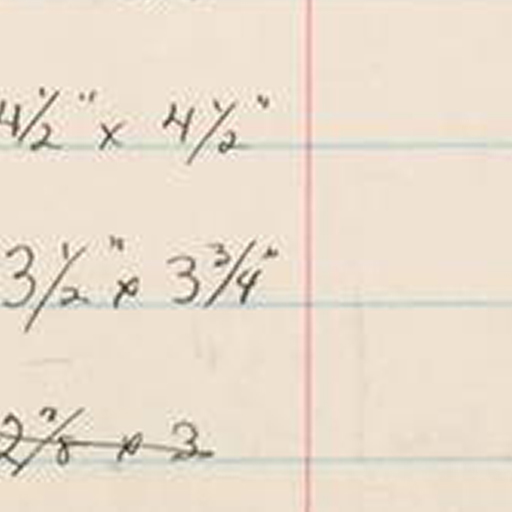 4 1/2" x 4 1/2"
3 1/2" x 3 3/4"
2 7/8 x 3